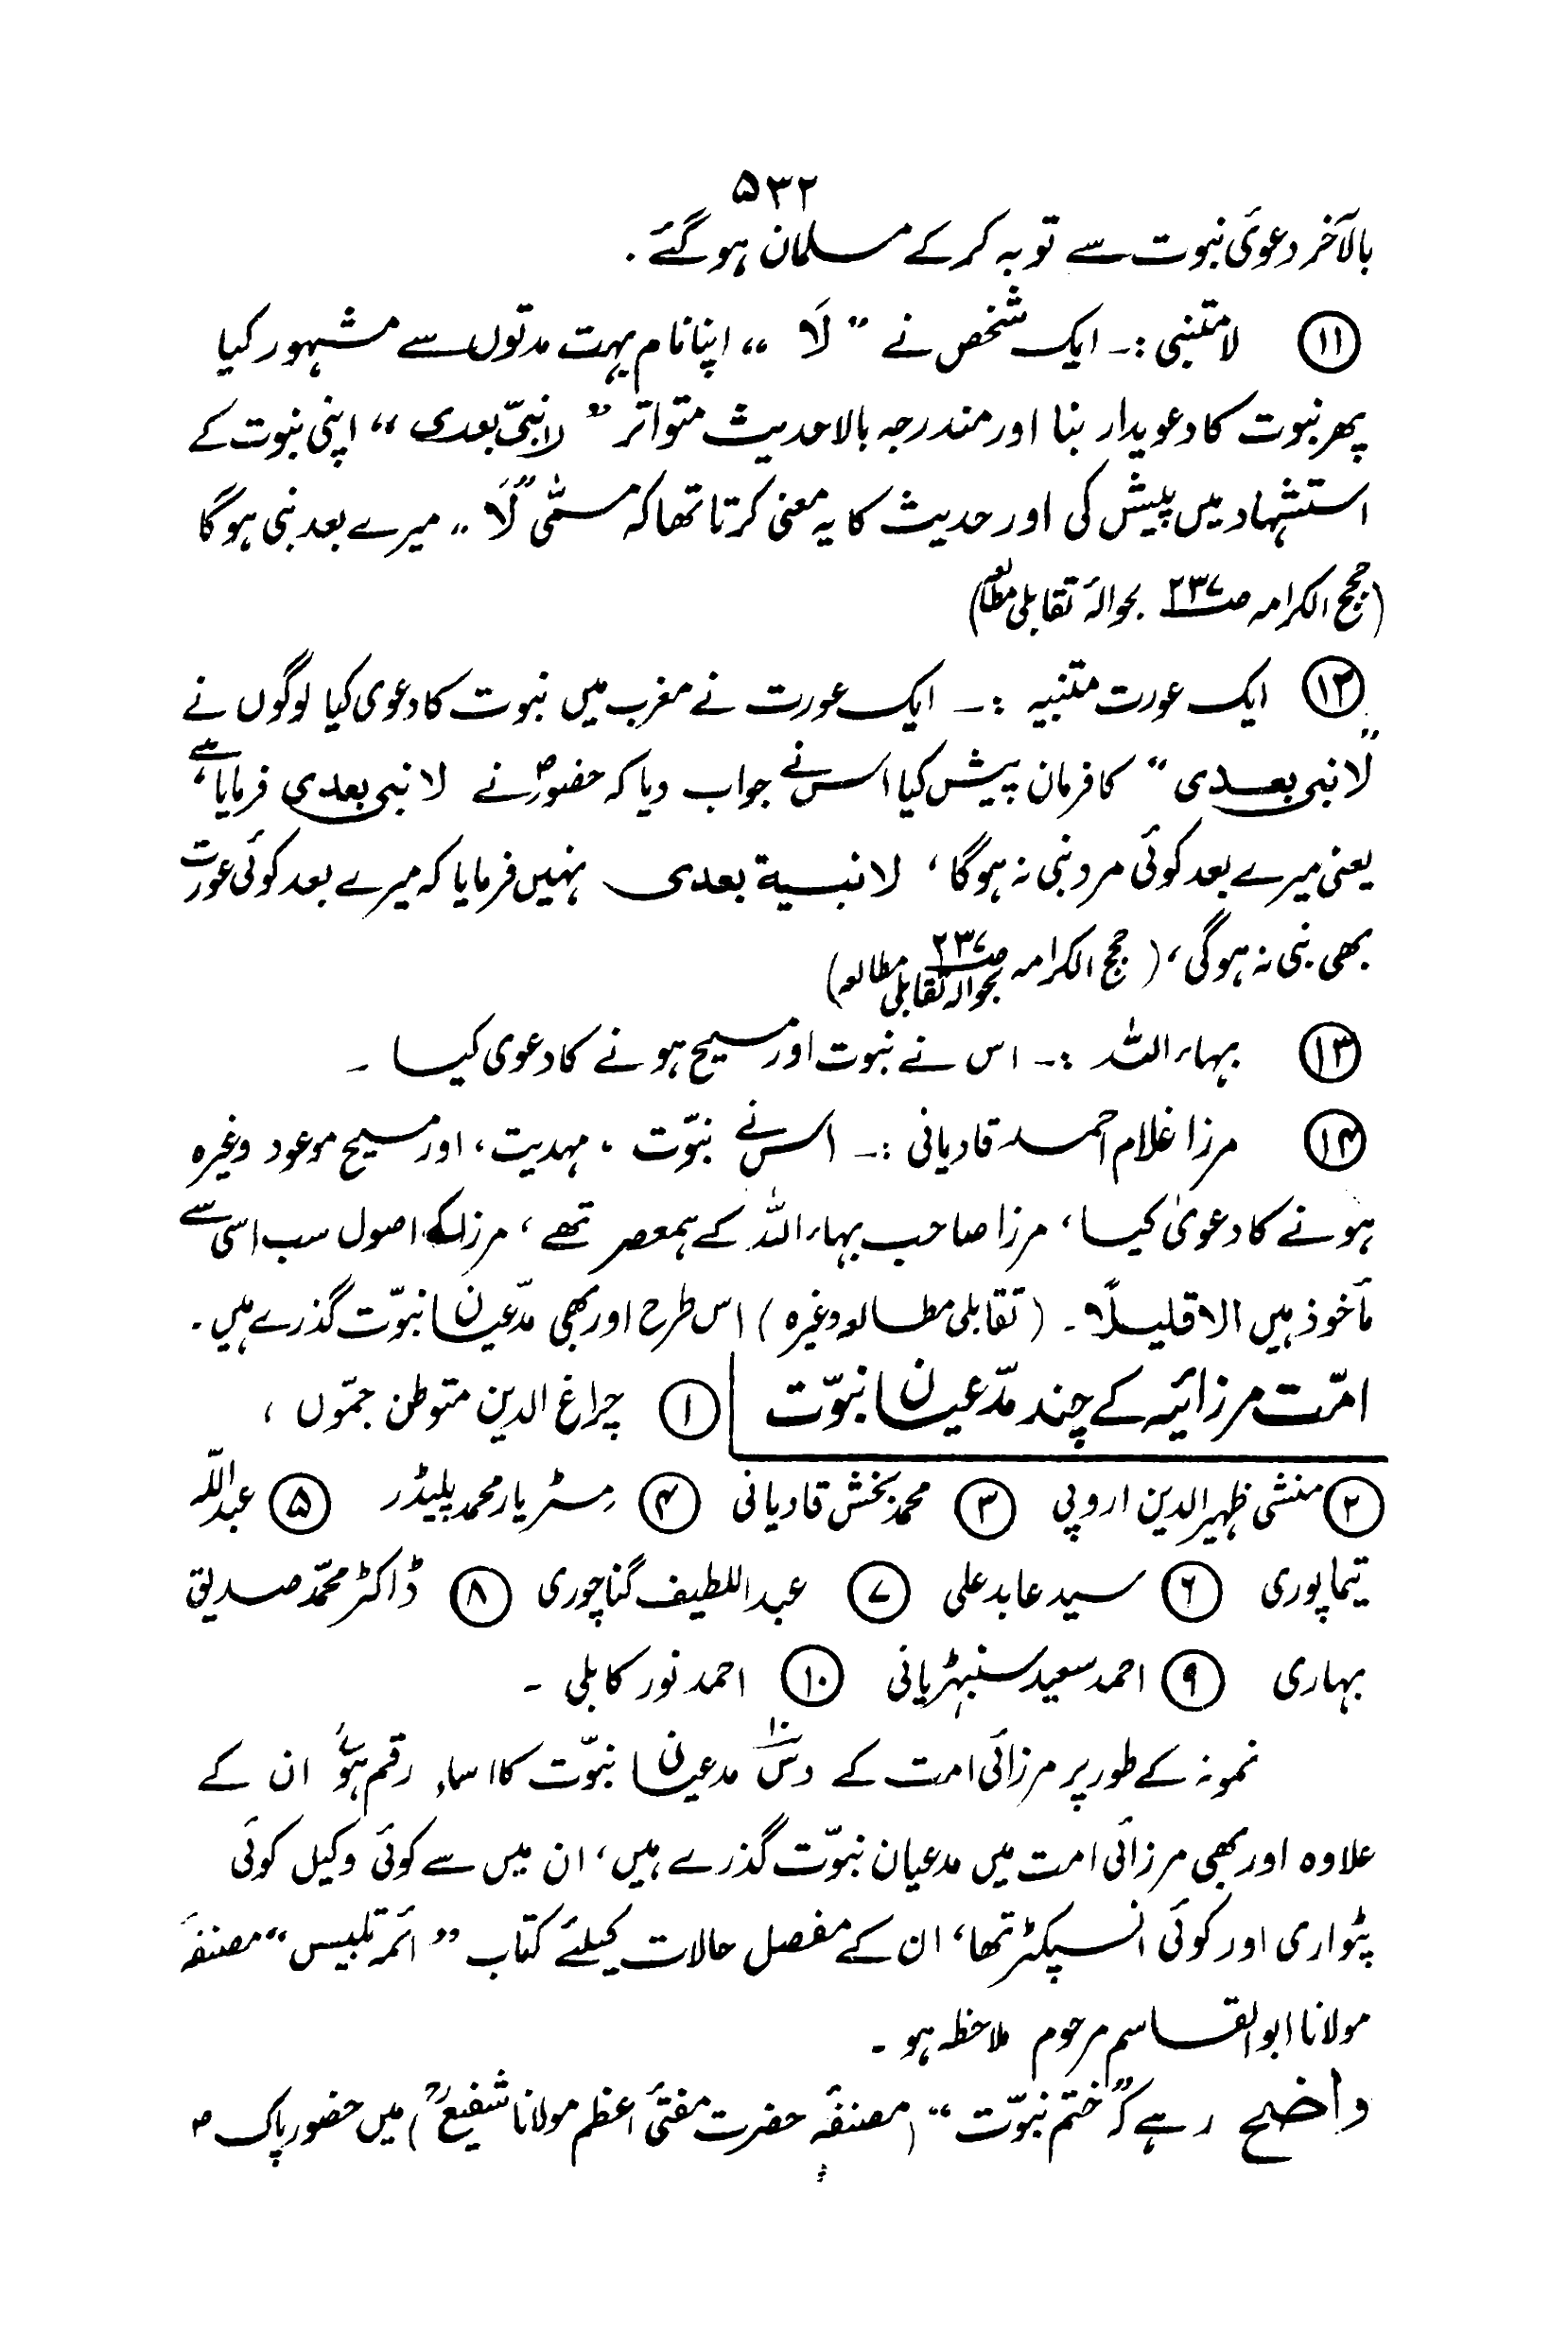 ۵۳۲
بالآخر دعویٔ نبوت سے توبہ کرکے مسلمان ہوگئے .
⑪ لا متنبی :۔ ایک شخص نے " لَا " اپنا نام بہت مدتوں سے مشہور کیا
پھر نبوت کا دعویدار بنا اور مندرجہ بالا حدیث متواتر " لا نبیّ بعدی " اپنی نبوت کے
استشہاد میں پیش کی اور حدیث کا یہ معنی کرتا تھا کہ مسمّٰی "لَا " میرے بعد نبی ہوگا
(حجج الکرامہ صـ۲۳۷ بحوالۂ تقابلی مطالعہ)
⑫ ایک عورت متنبیہ :۔ ایک عورت نے مغرب میں نبوت کا دعوی کیا لوگوں نے
"لا نبی بعدی" کا فرمان پیش کیا اس نے جواب دیا کہ حضورؐ نے لا نبی بعدی فرمایا ہے،
یعنی میرے بعد کوئی مرد نبی نہ ہوگا ، لا نبیة بعدی نہیں فرمایا کہ میرے بعد کوئی عورت
بھی نبی نہ ہوگی ، ( حجج الکرامہ صـ۲۳۷ بحوالہ تقابلی مطالعہ)
⑬ بہاء اللہ :۔ اس نے نبوت اور مسیح ہونے کا دعوی کیا ۔
⑭ مرزا غلام احمد قادیانی :۔ اس نے نبوّت ، مہدیت ، اور مسیح موعود وغیرہ
ہونے کا دعویٰ کیا ، مرزا صاحب بہاء اللہ کے ہمعصر تھے ، مرزا کے اصول سب اسی سے
مأخوذ ہیں الا قلیلًا ۔ ( تقابلی مطالعہ وغیرہ ) اس طرح اور بھی مدّعیان نبوّت گذرے ہیں ۔
امّت مرزائیہ کے چند مدّعیان نبوّت ① چراغ الدین متوطن جمّوں ،
② منشی ظہیر الدین اروپی ③ محمد بخش قادیانی ④ مسٹر یار محمد پلیڈر ⑤ عبداللہ
تیماپوری ⑥ سید عابد علی ⑦ عبد اللطیف گناچوری ⑧ ڈاکٹر محمّد صدیق
بہاری ⑨ احمد سعید سنبھڑیانی ⑩ احمد نور کابلی ۔
نمونہ کے طور پر مرزائی امت کے دس ۱۰ مدعیان نبوّت کا اسماء رقم ہوئے ان کے
علاوہ اور بھی مرزائی امت میں مدعیان نبوّت گذرے ہیں ، ان میں سے کوئی وکیل کوئی
پٹواری اور کوئی انسپکٹر تھا ، ان کے مفصل حالات کیلئے کتاب " ائمہ تلبیس " مصنفۂ
مولانا ابوالقاسم مرحوم ملاحظہ ہو ۔
واضح رہے کہ "ختم نبوّت " ( مصنفۂ حضرت مفتیٔ اعظم مولانا شفیعؒ ) میں حضور پاک ؐ